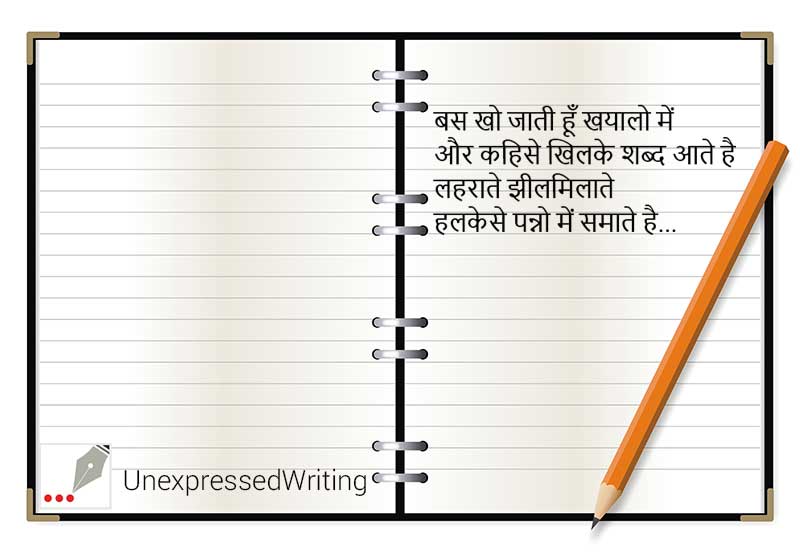 बस खो जाती हूँ खयालो में
और कहिसे खिलके शब्द आते है
लहराते झीलमिलाते
हलकेसे पन्नो में समाते है...
UnexpressedWriting